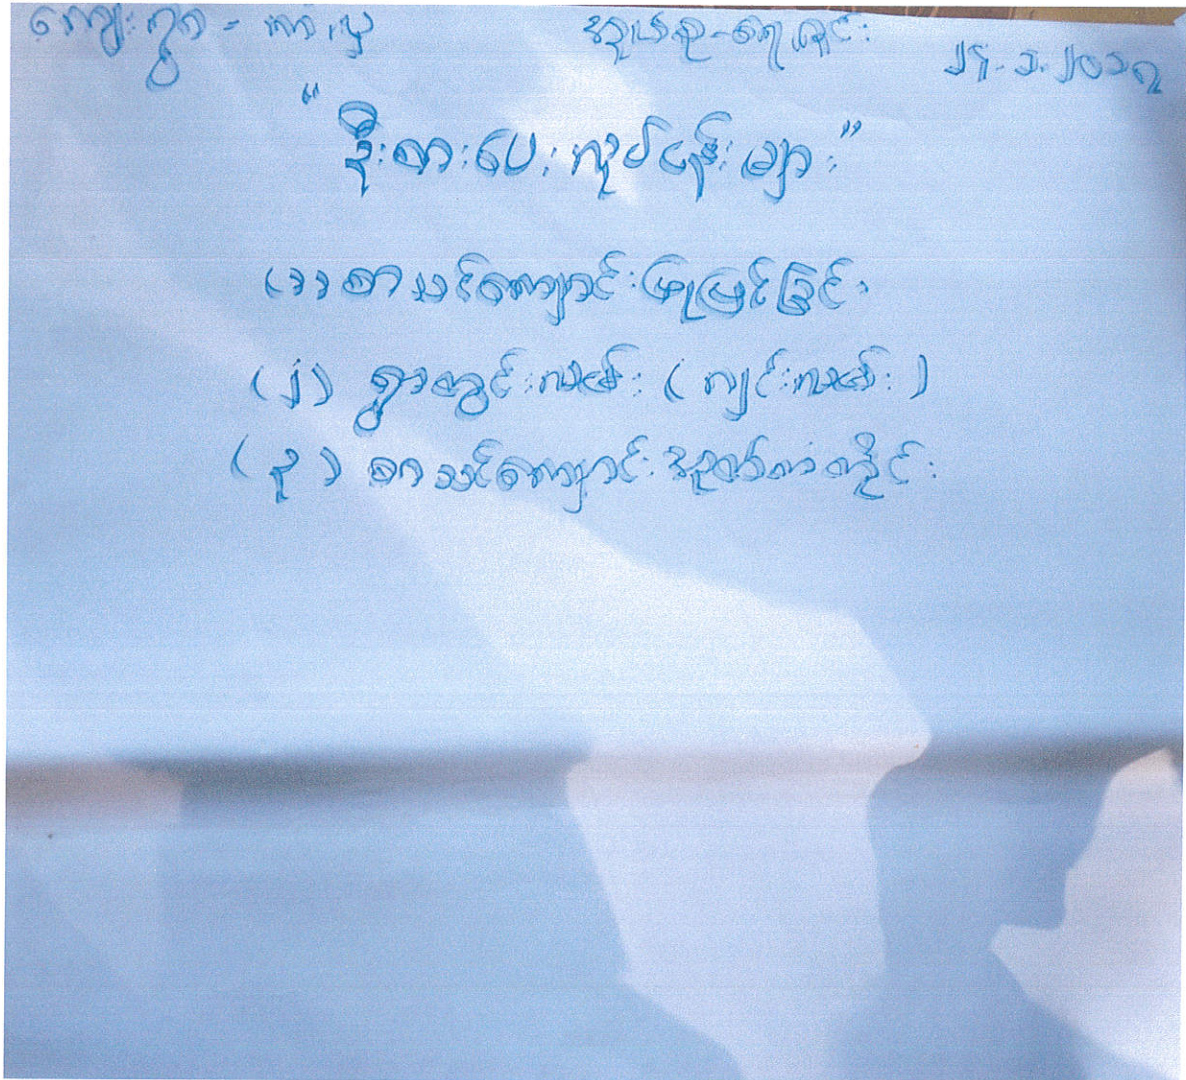 ကျေးရွာ - ကလှ အုပ်စု - ရေချှင်း ၂၄.၁.၂၀၁၇
"ဦးစားပေးလုပ်ငန်းများ"
(၁) စာသင်ကျောင်းပြုပြင်ခြင်း
(၂) ရွာတွင်းလမ်း (ကျင်းလမ်း)
(၃) စာသင်ကျောင်းအုတ်တံတိုင်း